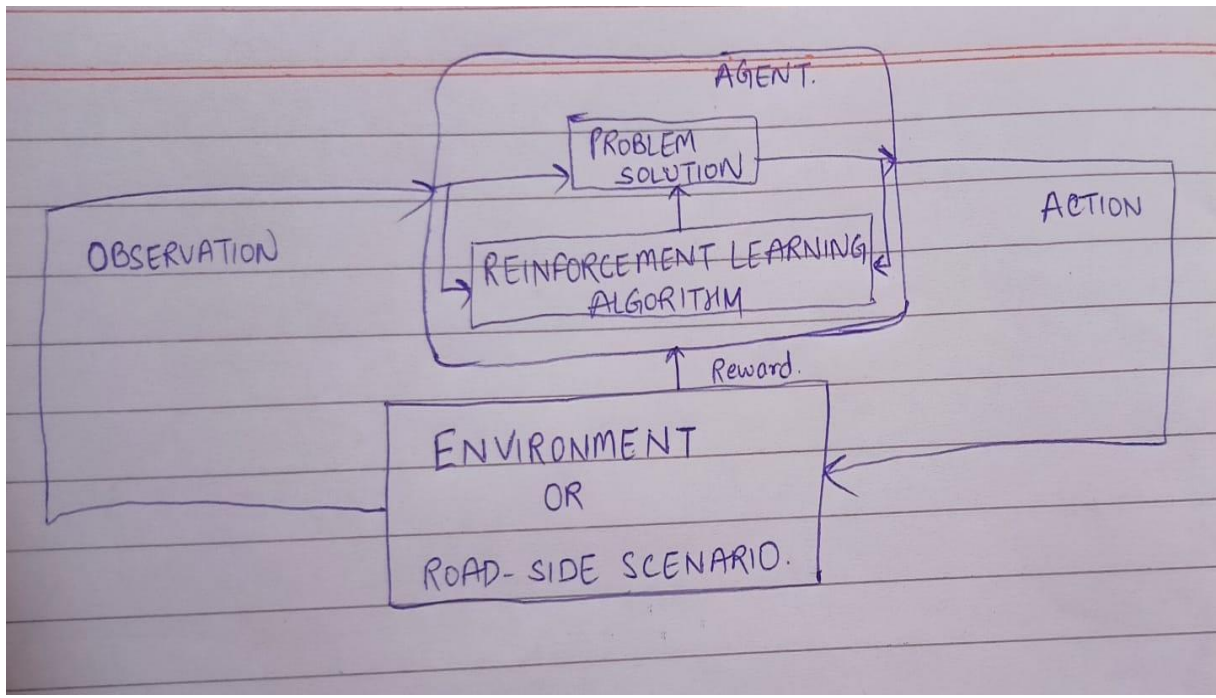 AGENT.
PROBLEM
SOLUTION
ACTION
OBSERVATION
REINFORCEMENT LEARNING
ALGORITHM
Reward.
ENVIRONMENT
OR
ROAD-SIDE SCENARIO.